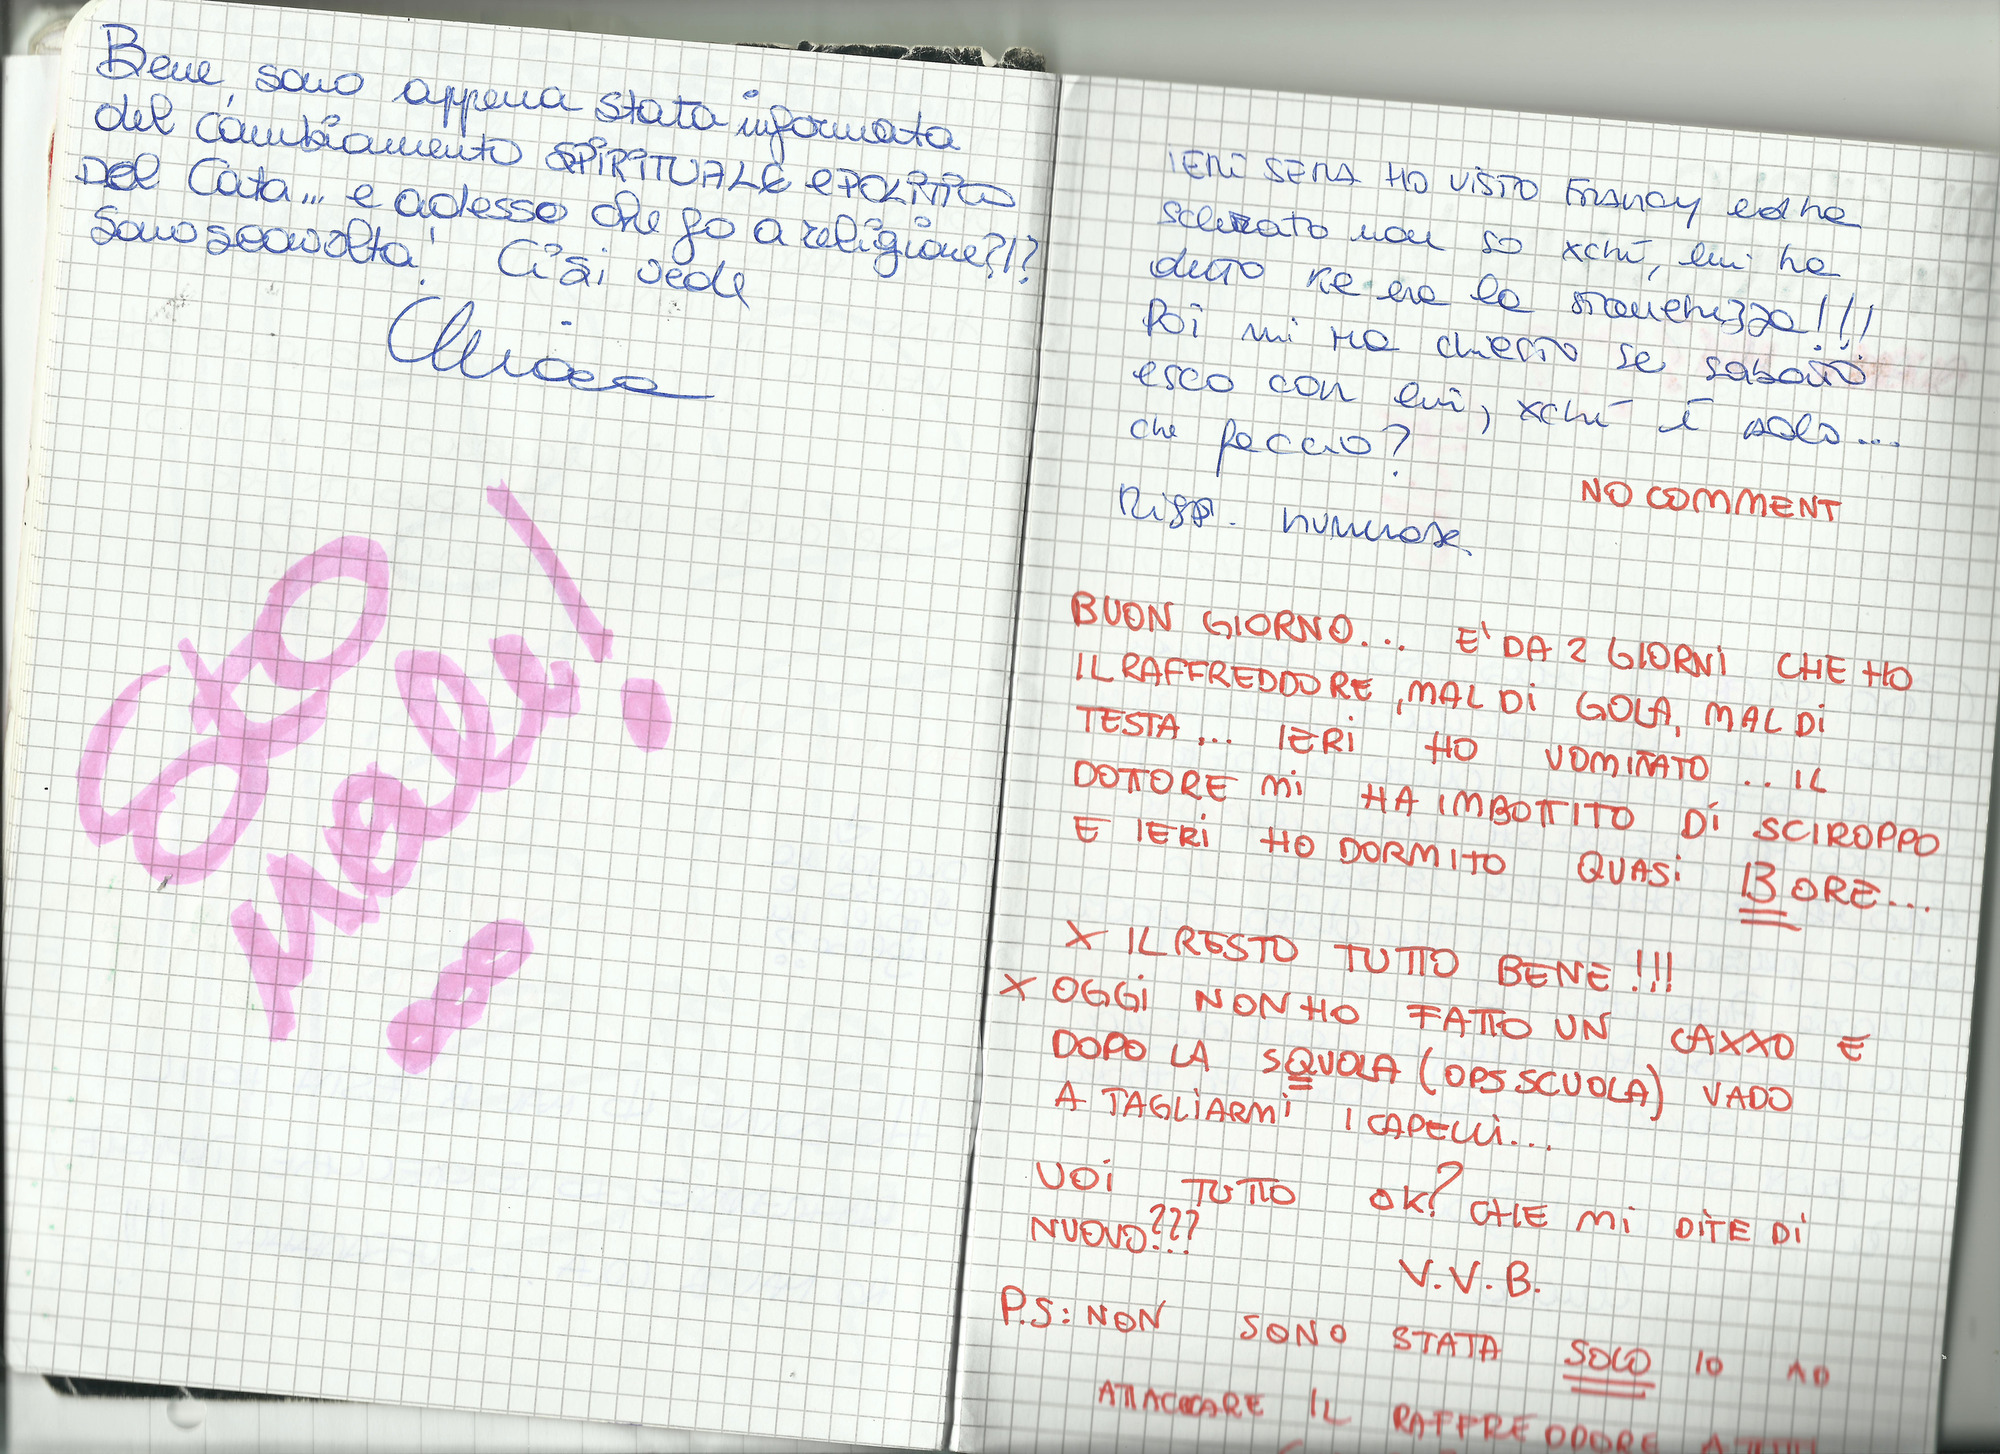 Bene, sono appena stata informata
del cambiamento SPIRITUALE e POLITICO
DEL Cata... e adesso che fo a religione?!?
sono sconvolta! Ci si vede
Chiara
Sto
male!
IERI SERA HO VISTO FRANCY ed ha
sclerato non so xché, lui ha
detto ke era la stanchezza!!!
Poi mi ha chiesto se sabato
esco con lui, xché è solo...
che faccio?
Risp. numerose
NO COMMENT
BUON GIORNO... E' DA 2 GIORNI CHE HO
IL RAFFREDDORE, MAL DI GOLA, MAL DI
TESTA... IERI HO VOMITATO... IL
DOTTORE MI HA IMBOTTITO DI SCIROPPO
E IERI HO DORMITO QUASI 13 ORE...
X IL RESTO TUTTO BENE!!!
X OGGI NON HO FATTO UN CAXXO E
DOPO LA SQUOLA (OPS SCUOLA) VADO
A TAGLIARMI I CAPELLI...
VOI TUTTO OK? CHE MI DITE DI
NUOVO???
V.V.B.
P.S: NON SONO STATA SOLO IO AD
ATTACCARE IL RAFFREDDORE A TUTTI